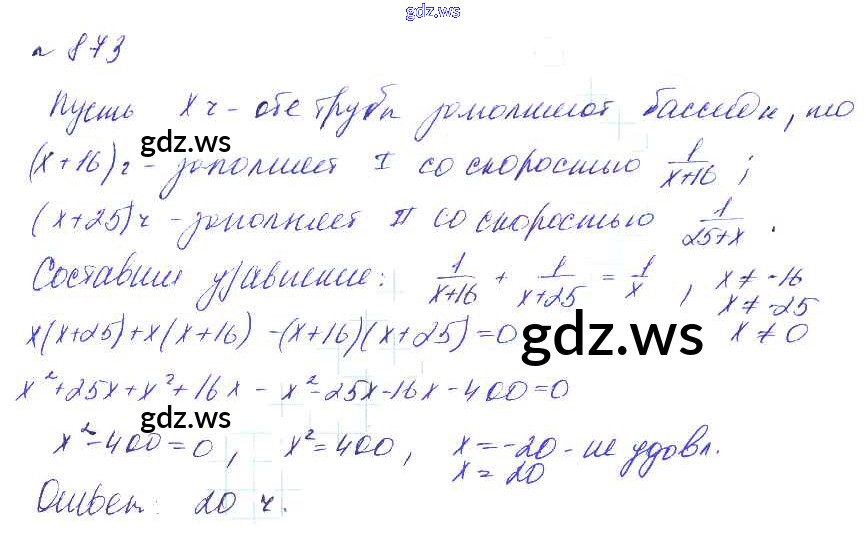 gdz.ws
n 873
Пусть x ч - обе трубы заполняют бассейн, то
gdz.ws
(x+16) ч - заполняет I со скоростью 1/(x+16) ;
(x+25) ч - заполняет II со скоростью 1/(25+x) .
Составим уравнение: 1/(x+16) + 1/(x+25) = 1/x , x ≠ -16
x ≠ -25
x ≠ 0
x(x+25)+x(x+16) -(x+16)(x+25)=0
gdz.ws
x²+25x+x²+16x - x²-25x-16x-400=0
gdz.ws
x²-400=0, x²=400, x=-20 - не удовл.
x=20
Ответ: 20 ч.